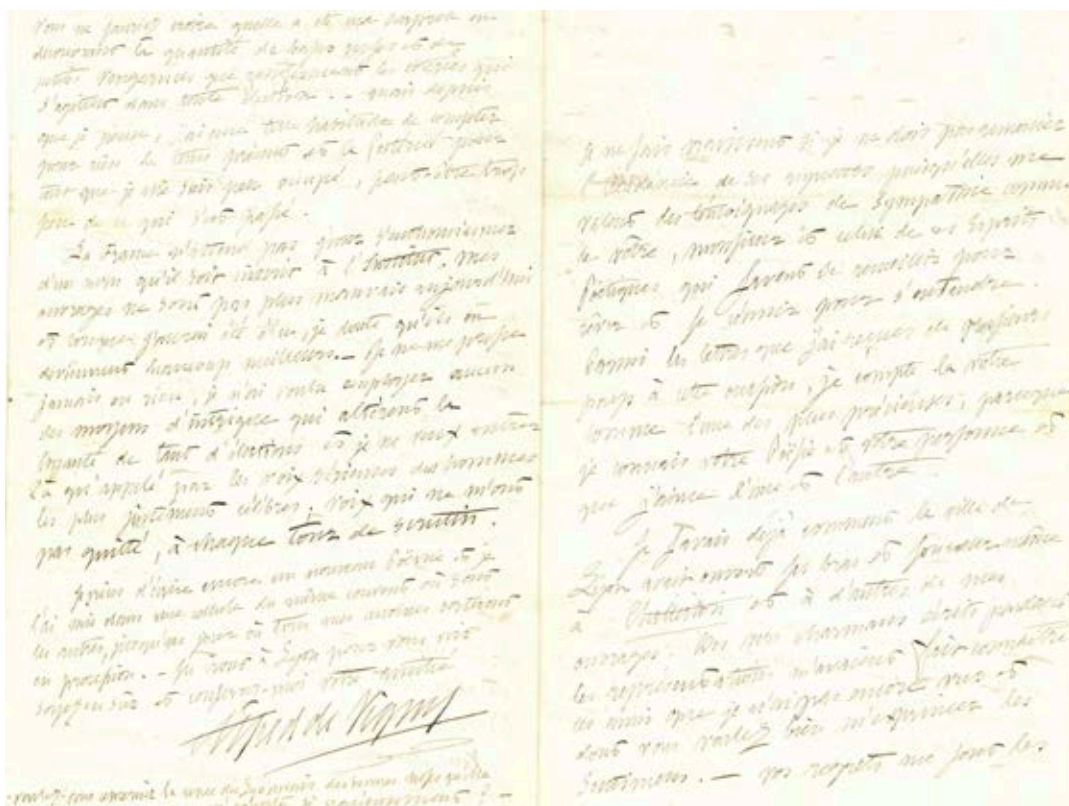 Vous ne sauriez croire quelle a été ma surprise en
découvrant la quantité de basses ruses et de
petites vengeances que renferment les qui
s'agitent dans toute élection. — mais depuis
que je pense, j'ai une telle habitude de compter
pour rien le tems présent et la postérité pour
tout que je me suis peu occupé, peut-être trop
peu de ce qui s'est passé.
La France n'attend pas pour s'enthousiasmer
d'un nom qu'il soit inscrit à l'Institut. mes
ouvrages ne sont pas plus mauvais aujourd'hui
et lorsque j'aurai été élu, je doute qu'ils en
deviennent beaucoup meilleurs. — Je ne me presse
jamais en rien, je n'ai voulu employer aucun
des moyens d'intrigue qui altèrent la
loyauté de tant d'élections et je ne veux entrer
là qu'appelé par les voix sérieuses des hommes
les plus justement célèbres, voix qui ne m'ont
pas quitté, à chaque tour de scrutin.
Je viens d'écrire encore un nouveau Poème et je
l'ai mis dans une cellule du même couvent où sont
les autres, jusqu'au jour où tous mes moines sortiront
en procession. — Ils iront à Lyon pour vous voir
soyez en sûr et conservez-moi votre amitié.
Alfred de Vigny
la revue du Lyonnais
Je ne sais vraiment si je ne dois pas remercier
l'Académie de ses rigueurs puisqu'elles me
valent des témoignages de sympathie comme
le vôtre, monsieur et celui de ces Esprits
Poétiques qui savent se recueillir pour
rêver et se réunir pour s'entendre.
Parmi les lettres que j'ai reçues de plusieurs
pays à cette occasion, je compte la vôtre
comme l'une des plus précieuses, parceque
je connais votre Poésie et votre personne et
que j'aime l'une et l'autre.
Je savais déjà comment la ville de
Lyon avait ouvert ses bras et son cœur même
à Chatterton et à d'autres de mes
ouvrages. De charmants écrits pendant
les représentations m'avaient fait connaître
les amis que je n'ai pas encore vus et
dont vous voulez bien m'exprimer les
sentiments. — vos respects me sont les